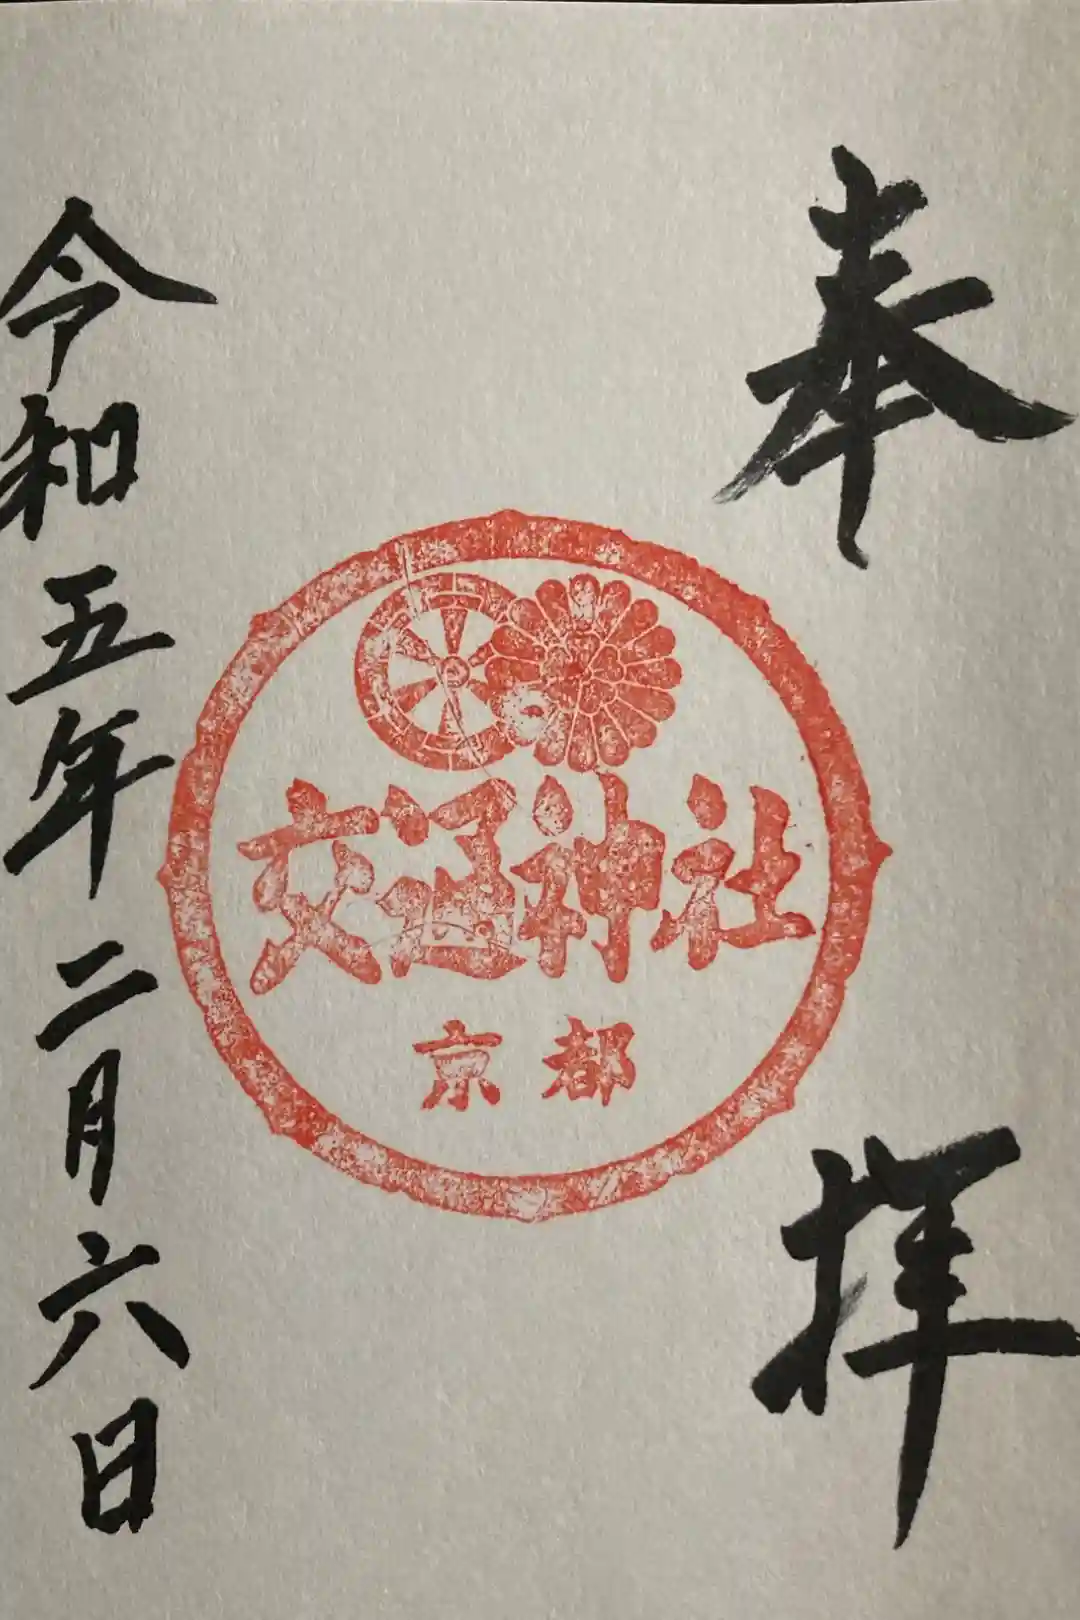 奉拝
交通神社
京都
令和五年二月六日